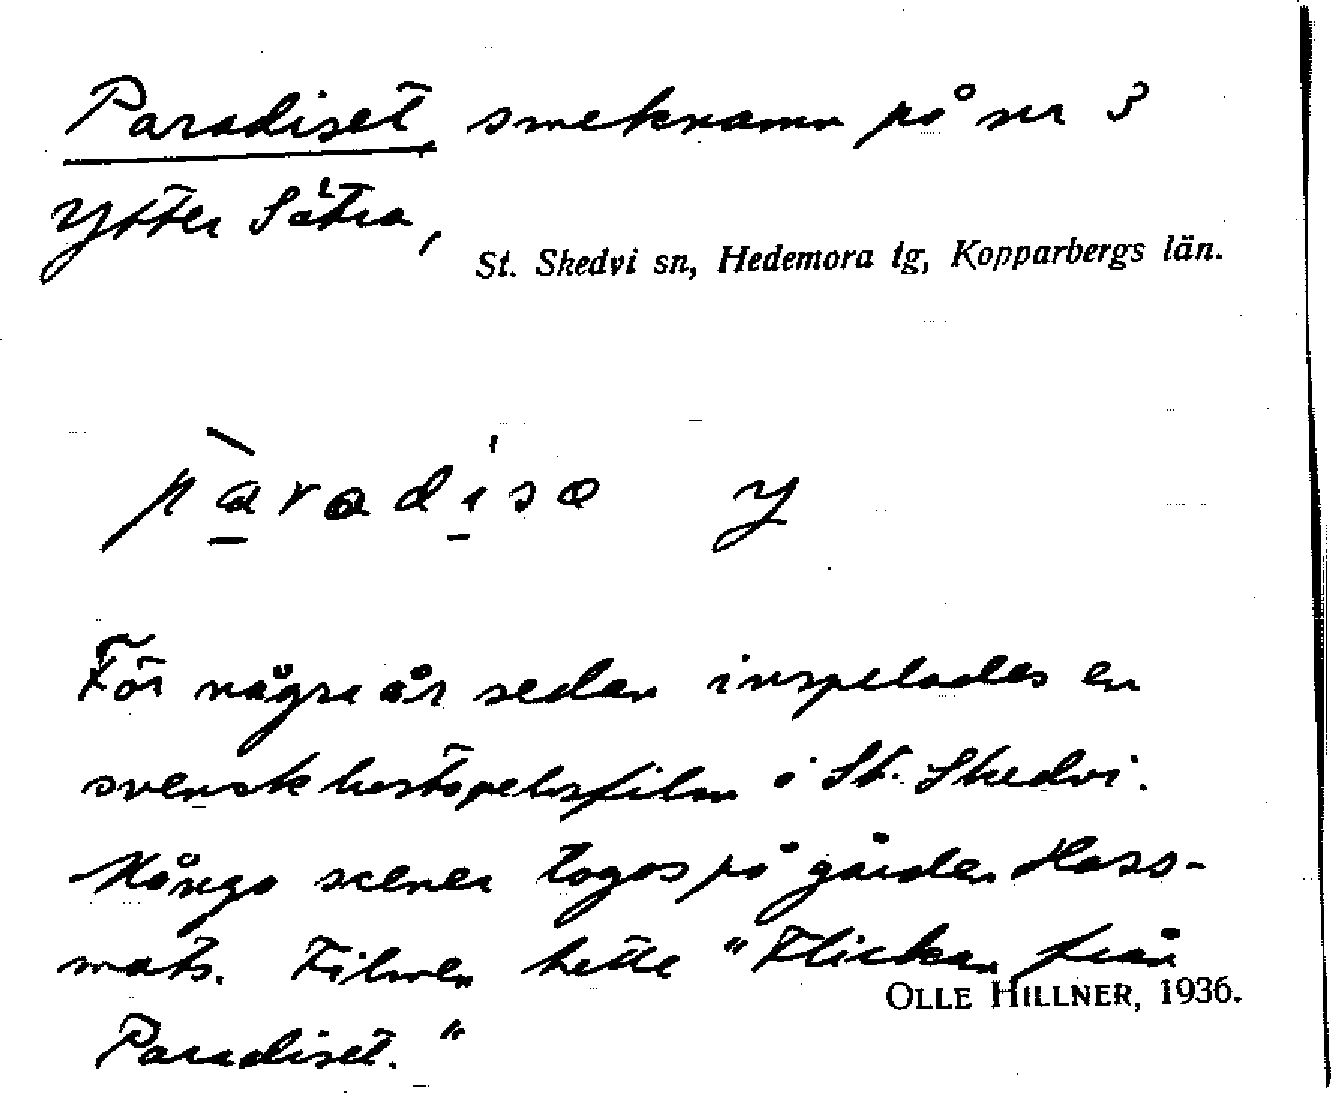 Paradiset, smeknamn på nr 3
Ytter Sätra,
St. Skedvi sn, Hedemora tg, Kopparbergs län.
pàradi̍sə y
För några år sedan inspelades en
svensk lustspelsfilm i St. Skedvi.
Många scener togos på gården Hass-
mats. Filmen hette "Flickan från
OLLE HILLNER, 1936.
Paradiset."